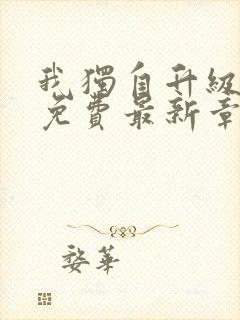 我獨自升級
免費最新章
婺華